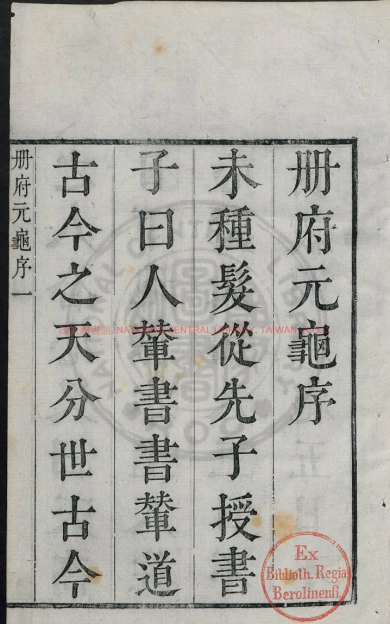 册府元龜序
未種髮從先子授書
子曰人輦書書輦道
古今之天分世古今
册府元龜序 一
Ex
Biblioth. Regia
Berolinensi.